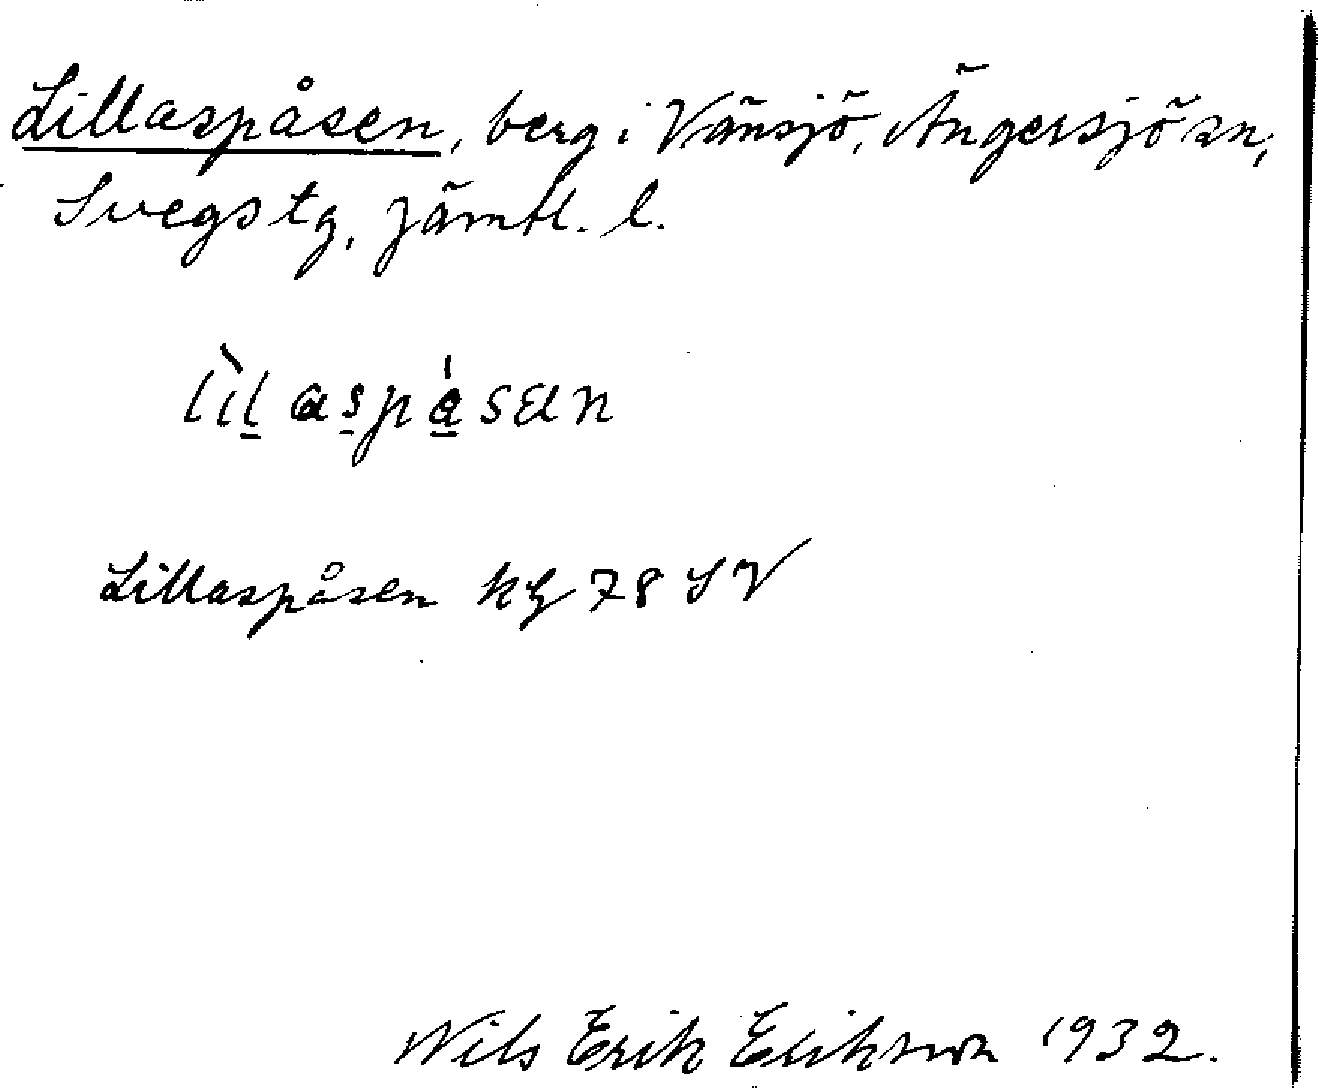 Lillaspåsen, berg i Vänsjö, Ängersjö sn,
Svegs tg, Jämtl. l.
lìl̠as̠pá̠sæn
Lillaspåsen kg 78 SV
Nils Erik Erikson 1932.